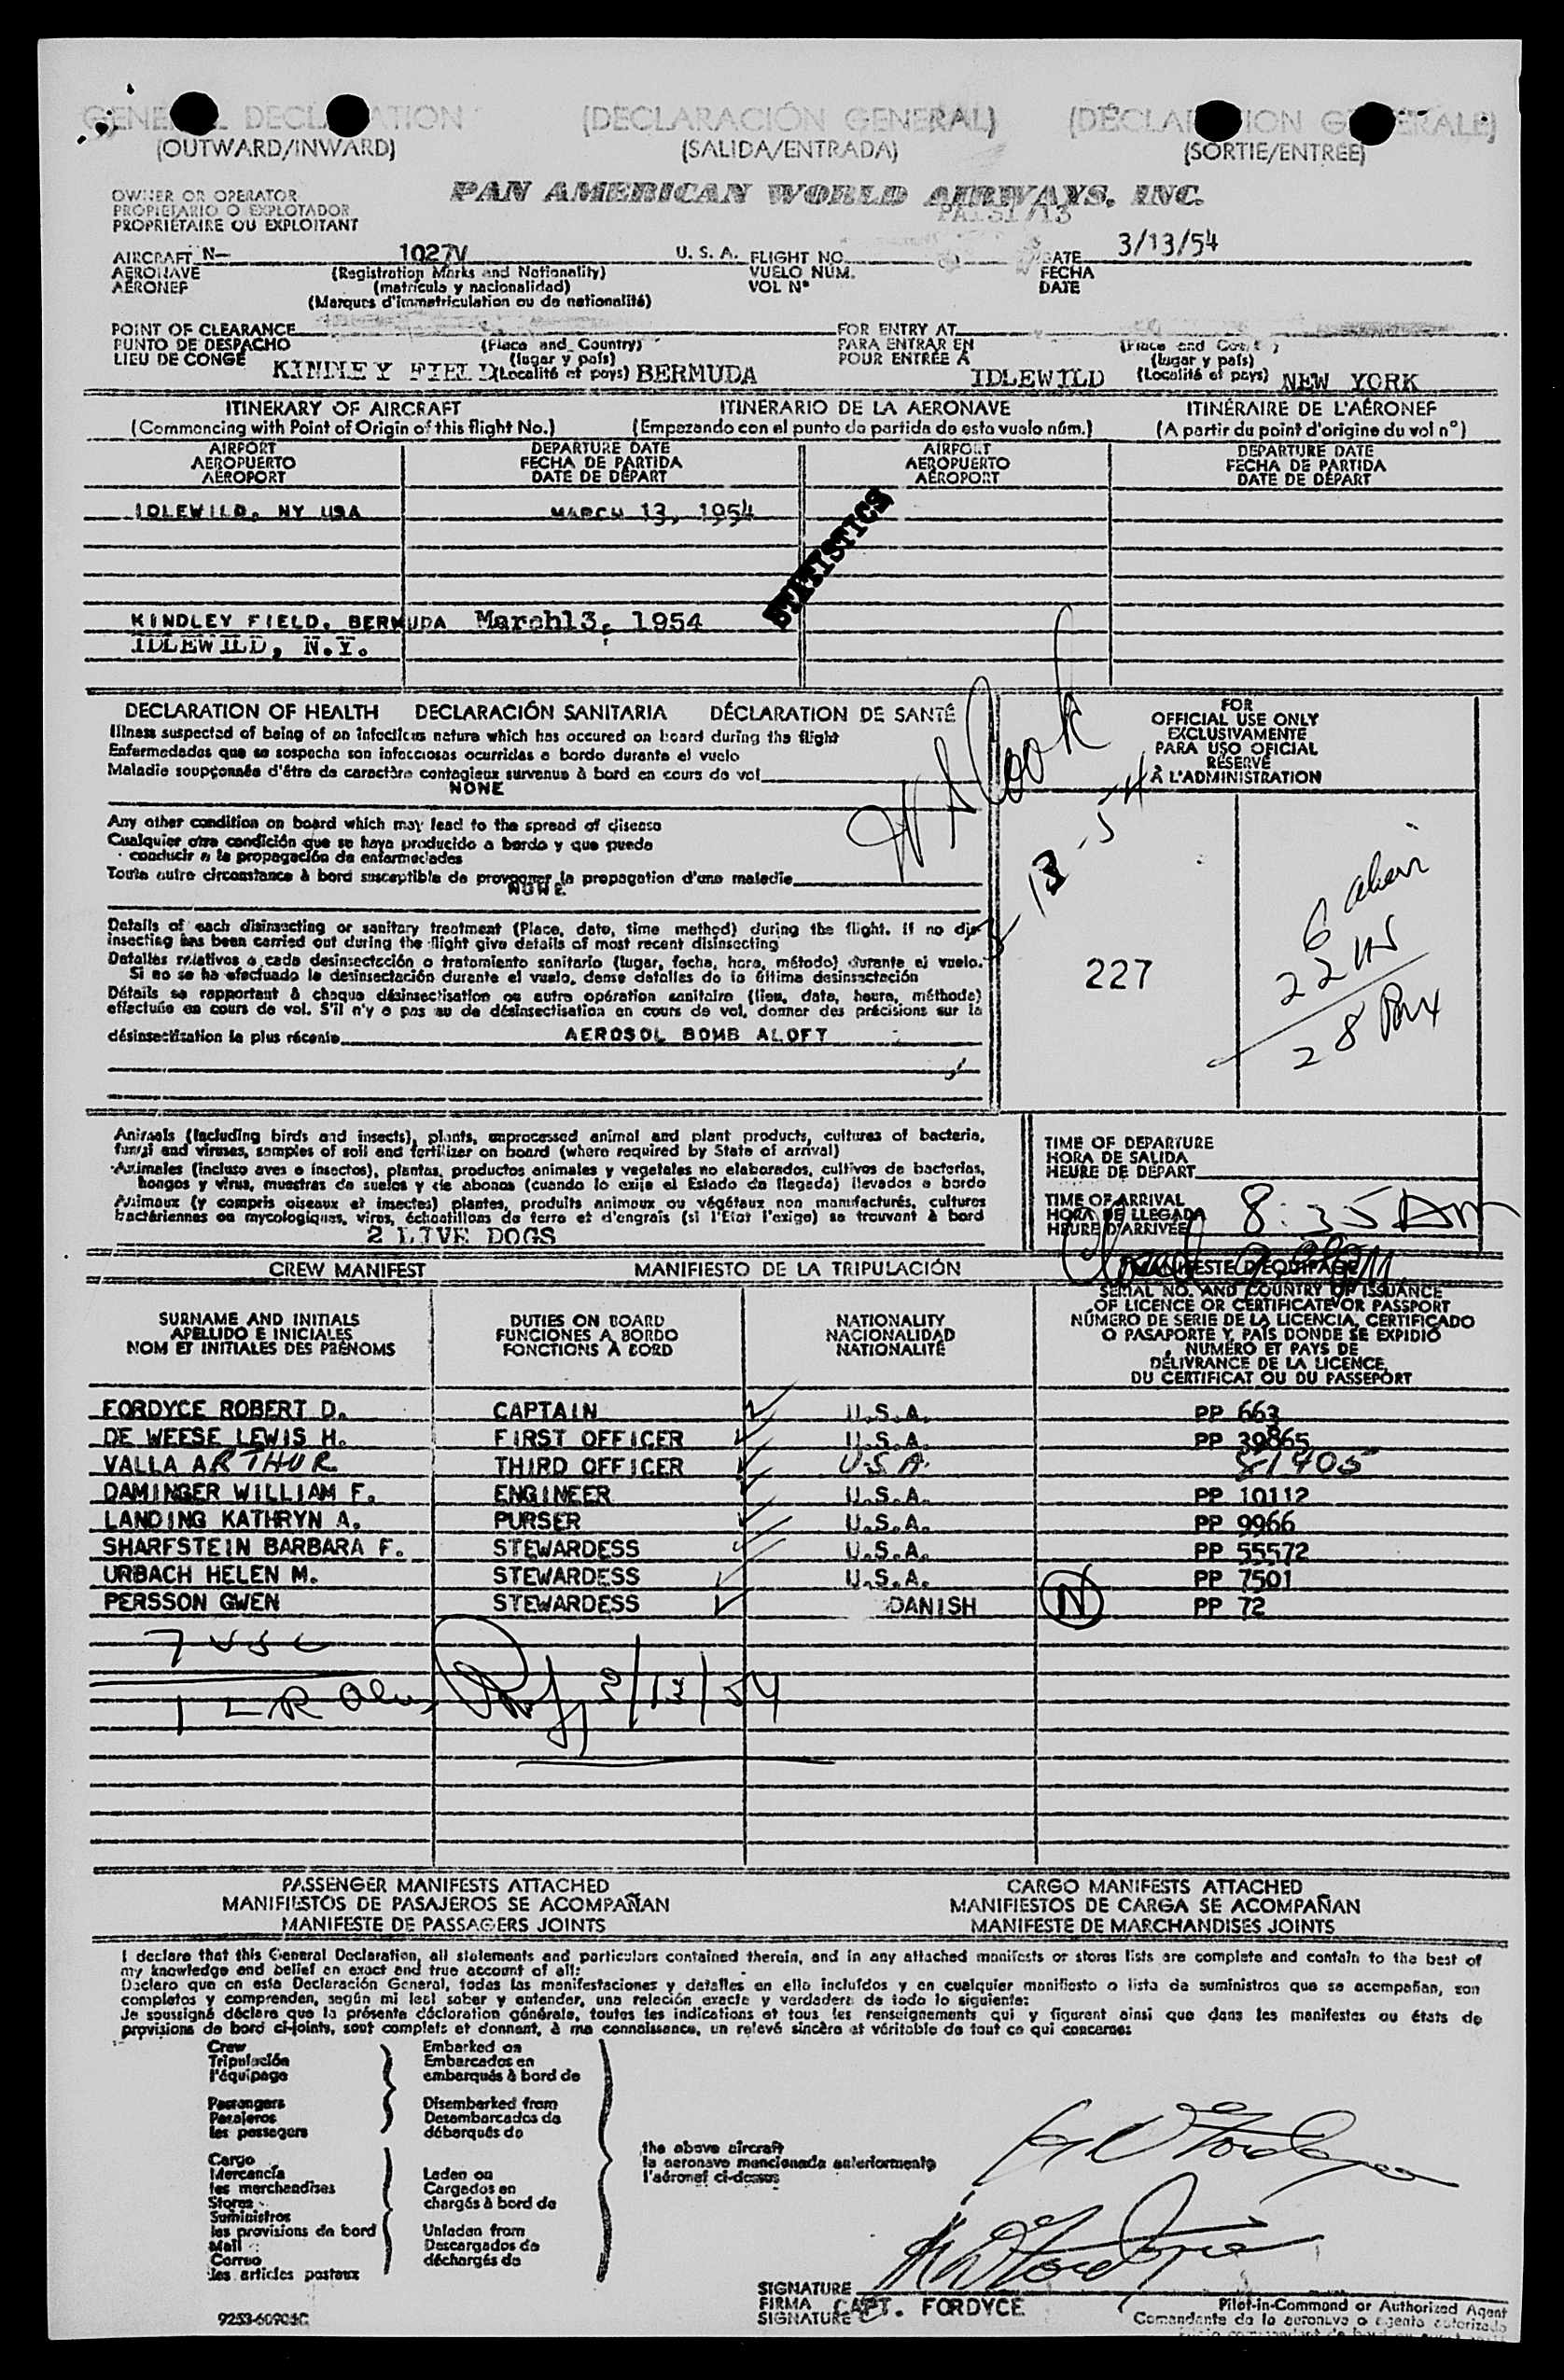 GENERAL DECLARATION (DECLARACIÓN GENERAL) (DÉCLARATION GÉNÉRALE)
(OUTWARD/INWARD) (SALIDA/ENTRADA) (SORTIE/ENTRÉE)
OWNER OR OPERATOR
PROPIETARIO O EXPLOTADOR
PROPRIÉTAIRE OU EXPLOITANT
PAN AMERICAN WORLD AIRWAYS, INC.
AIRCRAFT N- 1027V U. S. A. FLIGHT NO. DATE 3/13/54
AERONAVE (Registration Marks and Nationality) VUELO NÚM. FECHA
AÉRONEF (matrícula y nacionalidad) VOL N° DATE
(Marques d'immatriculation ou de nationalité)
POINT OF CLEARANCE FOR ENTRY AT
PUNTO DE DESPACHO (Place and Country) PARA ENTRAR EN (Place and Country)
LIEU DE CONGÉ (lugar y país) POUR ENTRÉE À (lugar y país)
KINDLEY FIELD (Localité et pays) BERMUDA IDLEWILD (Localité et pays) NEW YORK
ITINERARY OF AIRCRAFT ITINERARIO DE LA AERONAVE ITINÉRAIRE DE L'AÉRONEF
(Commencing with Point of Origin of this flight No.) (Empezando con el punto de partida de este vuelo núm.) (A partir du point d'origine du vol n°)
AIRPORT DEPARTURE DATE AIRPORT DEPARTURE DATE
AEROPUERTO FECHA DE PARTIDA AEROPUERTO FECHA DE PARTIDA
AÉROPORT DATE DE DÉPART AÉROPORT DATE DE DÉPART
IDLEWILD, NY USA MARCH 13, 1954
STATISTICS
KINDLEY FIELD, BERMUDA March13, 1954
IDLEWILD, N.Y.
DECLARATION OF HEALTH DECLARACIÓN SANITARIA DÉCLARATION DE SANTÉ
Illness suspected of being of an infectious nature which has occured on board during the flight
Enfermedades que se sospecha son infecciosas ocurridas a bordo durante el vuelo
Maladie soupçonnée d'être de caractère contagieux survenue à bord en cours de vol
NONE
Any other condition on board which may lead to the spread of disease
Cualquier otra condición que se haya producido a bordo y que pueda
conducir a la propagación de enfermedades
Toute autre circonstance à bord susceptible de provoquer la propagation d'une maladie
NONE
Details of each disinsecting or sanitary treatment (Place, date, time method) during the flight. If no dis-
insecting has been carried out during the flight give details of most recent disinsecting
Detalles relativos a cada desinsectación o tratamiento sanitario (lugar, fecha, hora, método) durante el vuelo.
Si no se ha efectuado la desinsectación durante el vuelo, dense detalles de la última desinsectación
Détails se rapportant à chaque désinsectisation ou autre opération sanitaire (lieu, date, heure, méthode)
effectuée en cours de vol. S'il n'y a pas eu de désinsectisation en cours de vol, donner des précisions sur la
désinsectisation la plus récente AEROSOL BOMB ALOFT
FOR
OFFICIAL USE ONLY
EXCLUSIVAMENTE
PARA USO OFICIAL
RÉSERVÉ
À L'ADMINISTRATION
Cook
3-13-54
227
6 alien
22 INS
28 Pax
Animals (including birds and insects), plants, unprocessed animal and plant products, cultures of bacteria,
fungi and viruses, samples of soil and fertilizer on board (where required by State of arrival)
Animales (incluso aves e insectos), plantas, productos animales y vegetales no elaborados, cultivos de bacterias,
hongos y virus, muestras de suelos y de abonos (cuando lo exija el Estado de llegada) llevados a bordo
Animaux (y compris oiseaux et insectes) plantes, produits animaux ou végétaux non manufacturés, cultures
bactériennes ou mycologiques, virus, échantillons de terre et d'engrais (si l'Etat l'exige) se trouvant à bord
2 LIVE DOGS
TIME OF DEPARTURE
HORA DE SALIDA
HEURE DE DÉPART
TIME OF ARRIVAL
HORA DE LLEGADA
HEURE D'ARRIVÉE 8:35 AM
CREW MANIFEST MANIFIESTO DE LA TRIPULACIÓN MANIFESTE D'ÉQUIPAGE
SURNAME AND INITIALS DUTIES ON BOARD NATIONALITY SERIAL NO. AND COUNTRY OF ISSUANCE
APELLIDO E INICIALES FUNCIONES A BORDO NACIONALIDAD OF LICENCE OR CERTIFICATE OR PASSPORT
NOM ET INITIALES DES PRÉNOMS FONCTIONS À BORD NATIONALITÉ NÚMERO DE SERIE DE LA LICENCIA, CERTIFICADO
O PASAPORTE Y PAÍS DONDE SE EXPIDIÓ
NUMÉRO ET PAYS DE
DÉLIVRANCE DE LA LICENCE,
DU CERTIFICAT OU DU PASSEPORT
FORDYCE ROBERT D. CAPTAIN U.S.A. PP 663
DE WEESE LEWIS H. FIRST OFFICER U.S.A. PP 39865
VALLA ARTHUR THIRD OFFICER U.S.A. 51905
DAMINGER WILLIAM F. ENGINEER U.S.A. PP 10112
LANDING KATHRYN A. PURSER U.S.A. PP 9966
SHARFSTEIN BARBARA F. STEWARDESS U.S.A. PP 55572
URBACH HELEN M. STEWARDESS U.S.A. PP 7501
PERSSON GWEN STEWARDESS DANISH N PP 72
7 USC
1 LR 3/13/54
PASSENGER MANIFESTS ATTACHED CARGO MANIFESTS ATTACHED
MANIFIESTOS DE PASAJEROS SE ACOMPAÑAN MANIFIESTOS DE CARGA SE ACOMPAÑAN
MANIFESTE DE PASSAGERS JOINTS MANIFESTE DE MARCHANDISES JOINTS
I declare that this General Declaration, all statements and particulars contained therein, and in any attached manifests or stores lists are complete and contain to the best of
my knowledge and belief an exact and true account of all:
Declaro que en esta Declaración General, todas las manifestaciones y detalles en ella incluídos y en cualquier manifiesto o lista de suministros que se acompañan, son
completos y comprenden, según mi leal saber y entender, una relación exacta y verdadera de todo lo siguiente:
Je soussigné déclare que la présente déclaration générale, toutes les indications et tous les renseignements qui y figurent ainsi que dans les manifestes ou états de
provisions de bord ci-joints, sont complets et donnent, à ma connaissance, un relevé sincère et véritable de tout ce qui concerne:
Crew Embarked on
Tripulación Embarcados en
l'équipage embarqués à bord de
Passengers Disembarked from
Pasajeros Desembarcados de
les passagers débarqués de
the above aircraft
la aeronave mencionada anteriormente
l'aéronef ci-dessus
Cargo
Mercancía Laden on
les marchandises Cargados en
Stores chargés à bord de
Suministros
les provisions de bord Unladen from
Mail Descargados de
Correo déchargés de
les articles postaux
SIGNATURE
FIRMA CAPT. FORDYCE Pilot-in-Command or Authorized Agent
SIGNATURE Comandante de la aeronave o agente autorizado
9253-60906C